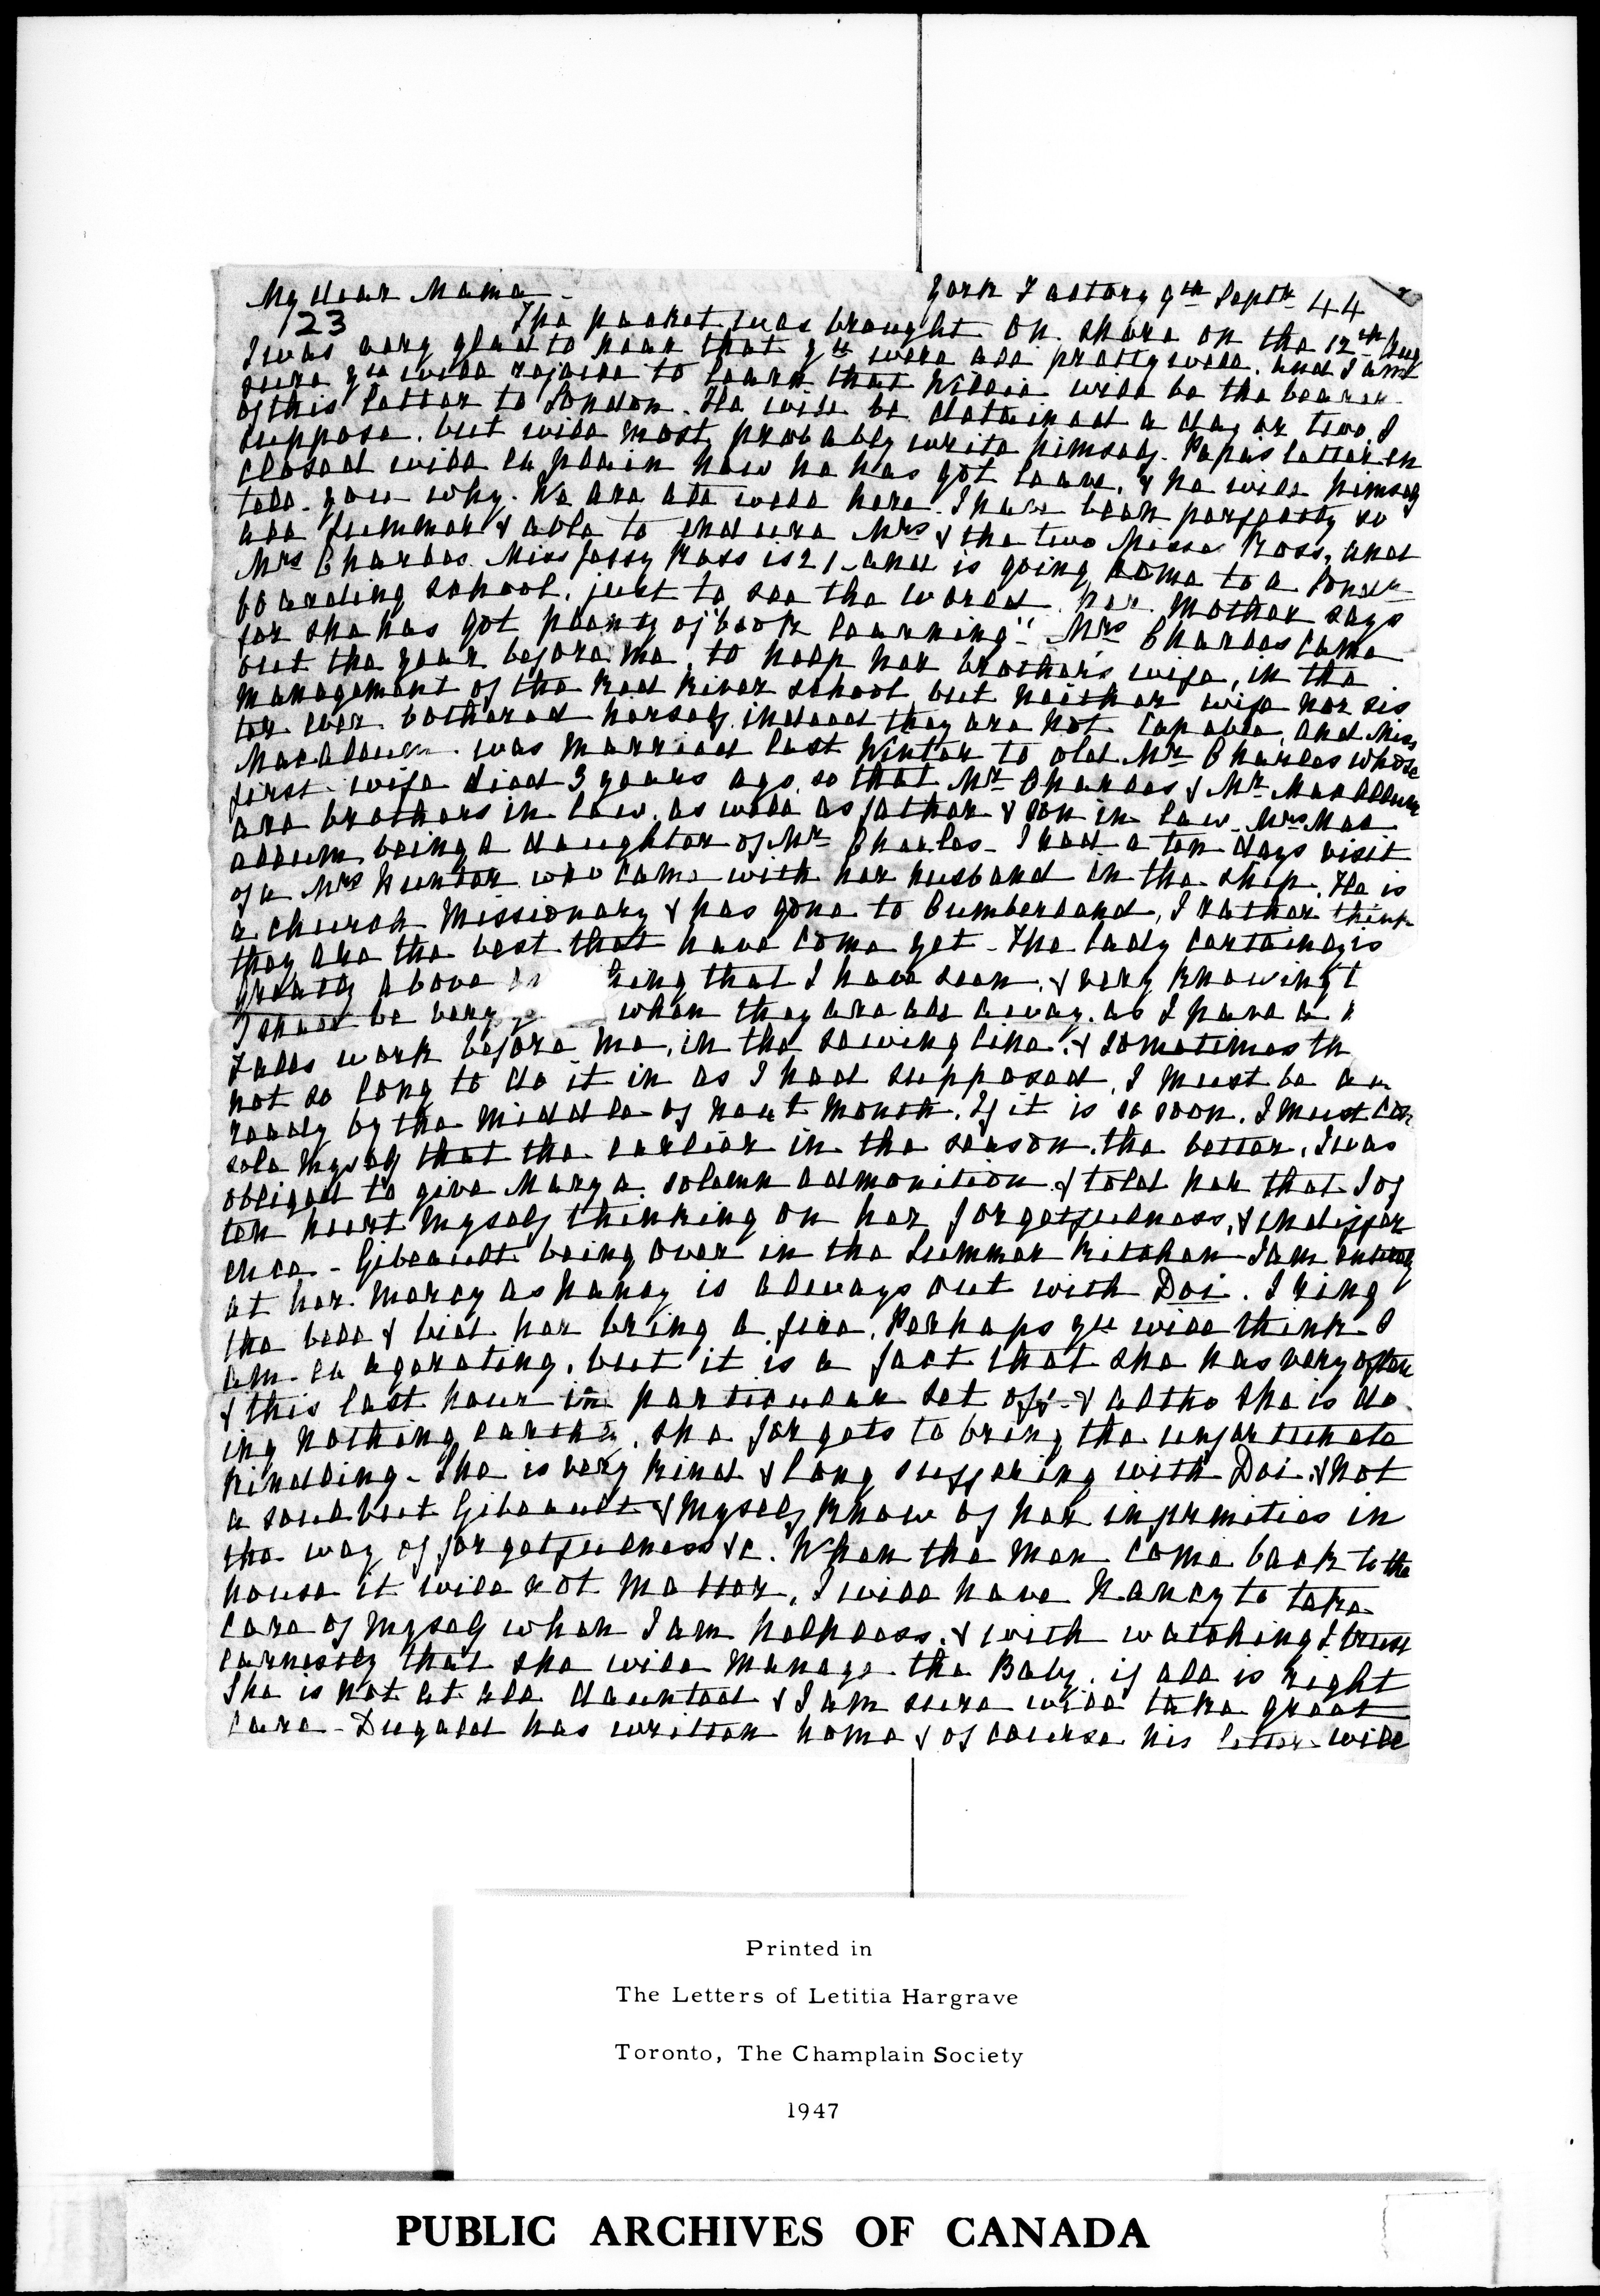 My dear Mama - York Factory 9th Septr 44
123 The packet was brought on shore on the 12th Aug
I was very glad to hear that yu were all pretty well. and I am
sure yu will rejoice to learn that Willie will be the bearer
of this letter to London. He will be detained a day or two I
suppose. but will most probably write himself. Papa's letter en
closed will explain how he has got leave, & he will himself
tell you why. We are all well here. I have been perfectly so
all summer & able to endure Mrs & the two Misses Ross, and
Mrs Charles. Miss Jessy Ross is 21 - and is going home to a
boarding school, just to see the world her mother says
for she has got plenty of "book learning". Mrs Charles came
out the year before me, to help her brother's wife, in the
management of the Red River school but neither wife nor sis
ter ever bothered herself. indeed they are not capable, and Miss
Macallum was married last Winter to old Mr Charles whose
first wife died 3 years ago, so that Mr Charles & Mr Macallum
are brothers in law, as well as father & son in law - Mrs Mac
allum being a daughter of Mr Charles - I had a ten days visit
of a Mrs Hunter who came with her husband in the ship. He is
a church Missionary & has gone to Cumberland, I rather think
they are the best that have come yet - The lady certainly is
greatly above thing that I have seen, & very knowing
I shall be very when they are all away. as I have a
work before me, in the sewing line, & sometimes th
not so long to do it in as I had supposed, I must be
ready by the middle of next month. If it is so soon, I must con
sole myself that the earlier in the season the better. I was
obliged to give Mary a solemn admonition & told her that I of
ten hurt myself thinking on her forgetfulness, & indiffer
ence - Gibeault being over in the Summer kitchen I am entirely
at her mercy as Nancy is always out with Doi. I ring
the bell & bid her bring a fire. Perhaps yu will think I
am exagerating, but it is a fact that she has very often
& this last hour in particular set off - & altho she is do
ing nothing earthly, she forgets to bring the unfortunate
kindling - She is very kind & long suffering with Doi & not
a soul but Gibeault & myself know of her infirmities in
the way of forgetfulness &c. When the men come back to the
house it will not matter, I will have Nancy to take
care of myself when I am helpless, & with watching I trust
earnestly that she will manage the Baby, if all is right
She is not at all daunted & I am sure will take great
care - Dugald has written home & of course his letter will
Printed in
The Letters of Letitia Hargrave
Toronto, The Champlain Society
1947
PUBLIC ARCHIVES OF CANADA